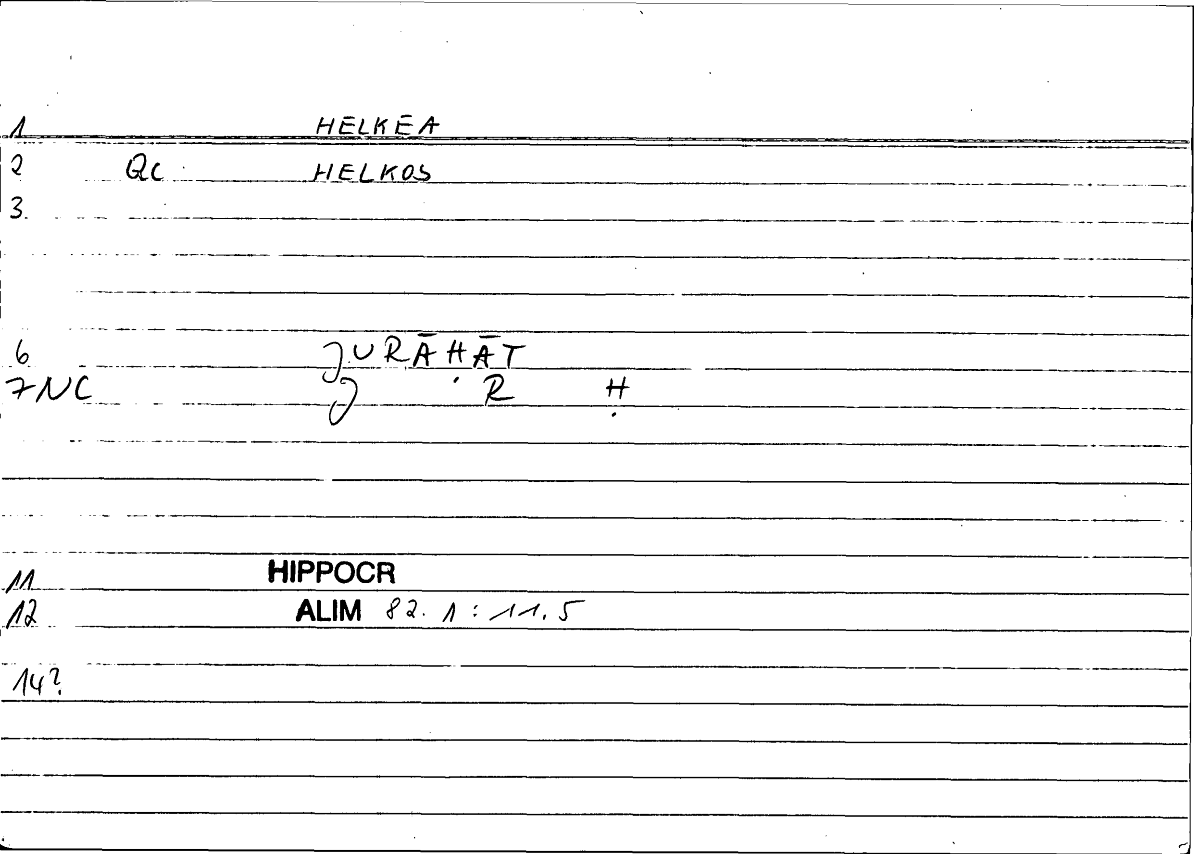 1 HELKEA
2 Qc HELKOS
3
6 JURĀḤĀT
7 NC J R Ḥ
11 HIPPOCR
12 ALIM 82.1:11.5
14?